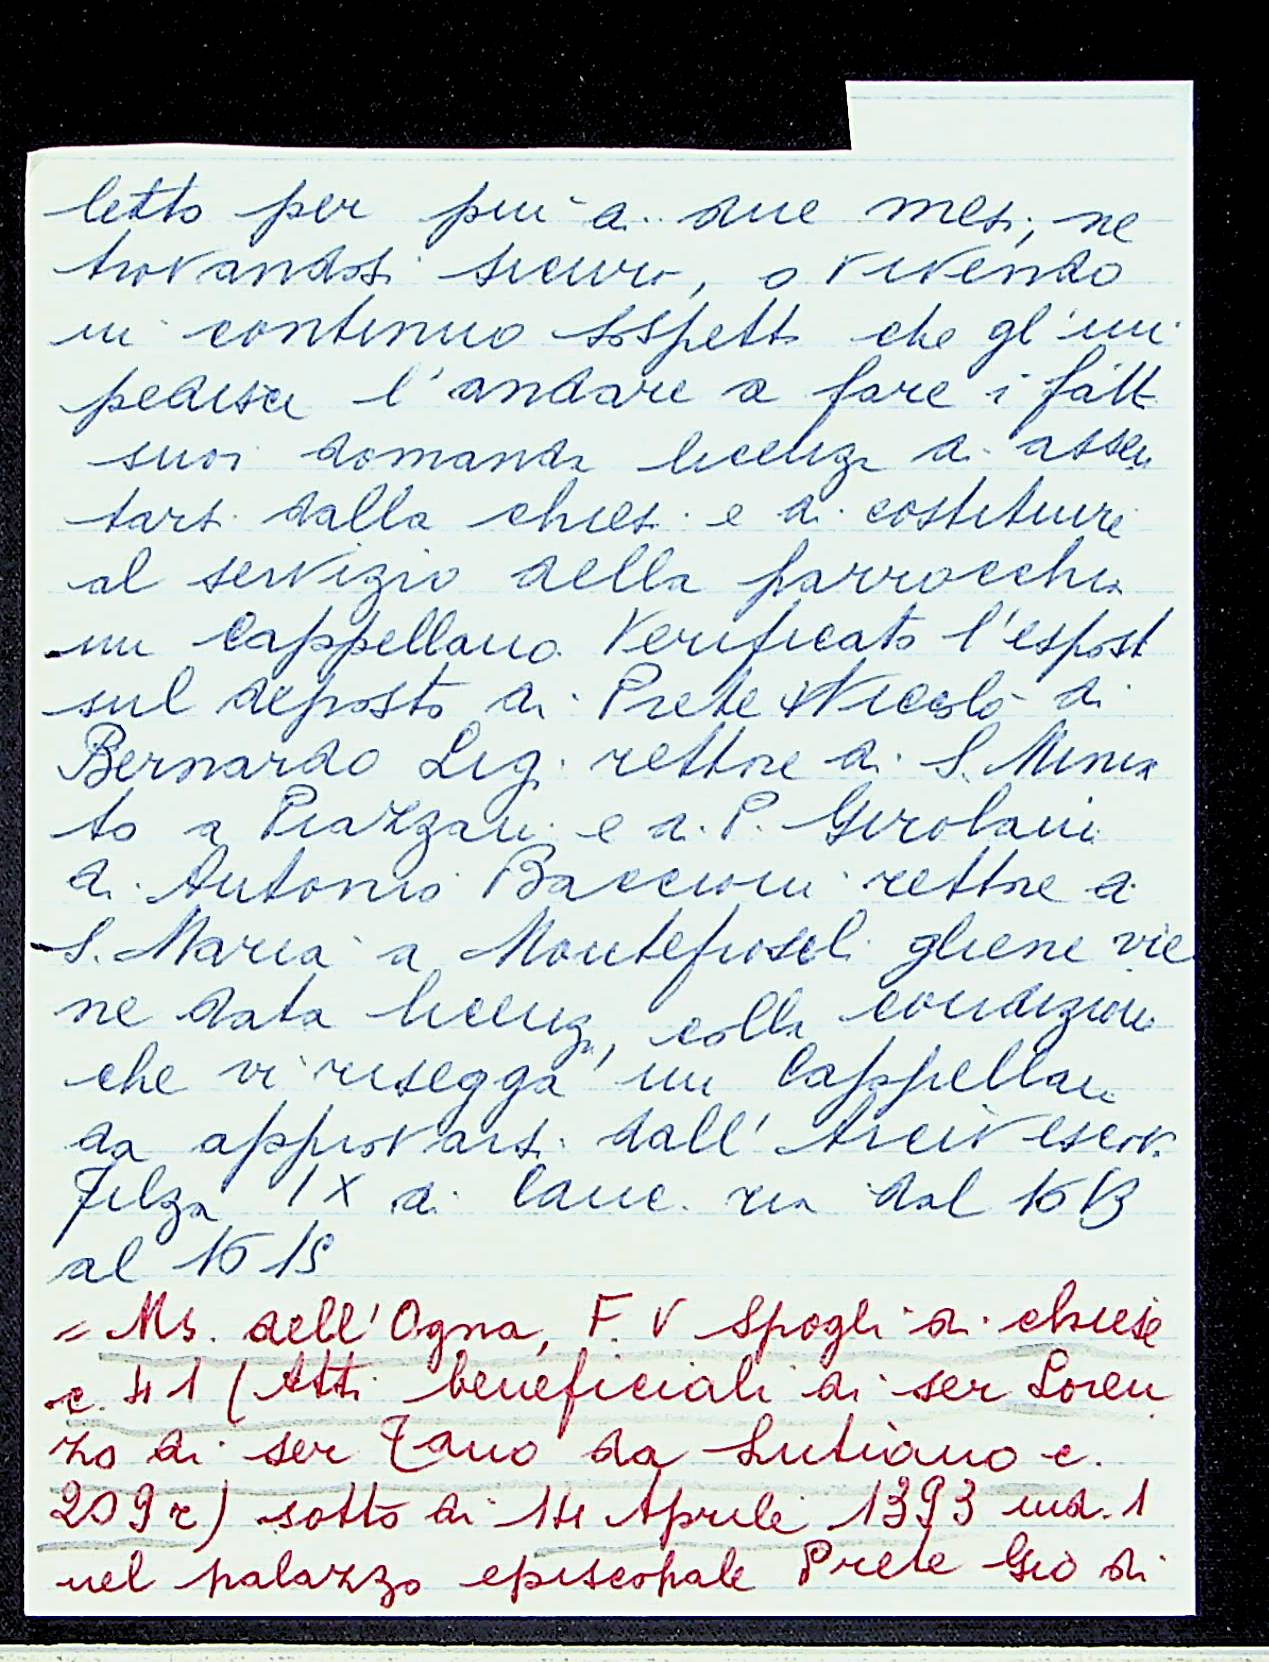 letto per più di due mesi, ne
trovandosi sicuro, o vivendo
in continuo sospetto che gl'im
pedisca l'andare a fare i fatti
suoi domanda licenza di assen
tarsi dalla chiesa e di costituire
al servizio della parrocchia
un Cappellano. Verificato l'esposto
sul deposto di Prete Niccolò di
Bernardo Lig. rettore di S. Minia
to a Piazzano e di P. Girolamo
di Antonio Baccioni rettore di
S. Maria a Montefiesoli gliene vie
ne data licenza, colla condizione
che vi risegga un Cappellano
da approvarsi dall'Arcivescovo.
Filza IX di Canc. ria dal 1613
al 1615
= Ms. dell'Ogna, F. V Spogli di chiese
c. 41 (Atti beneficiali di ser Loren
zo di ser Tano da Lutiano c.
209r) sotto di 14 Aprile 1393 ind. 1
nel palazzo episcopale Prete Gio di